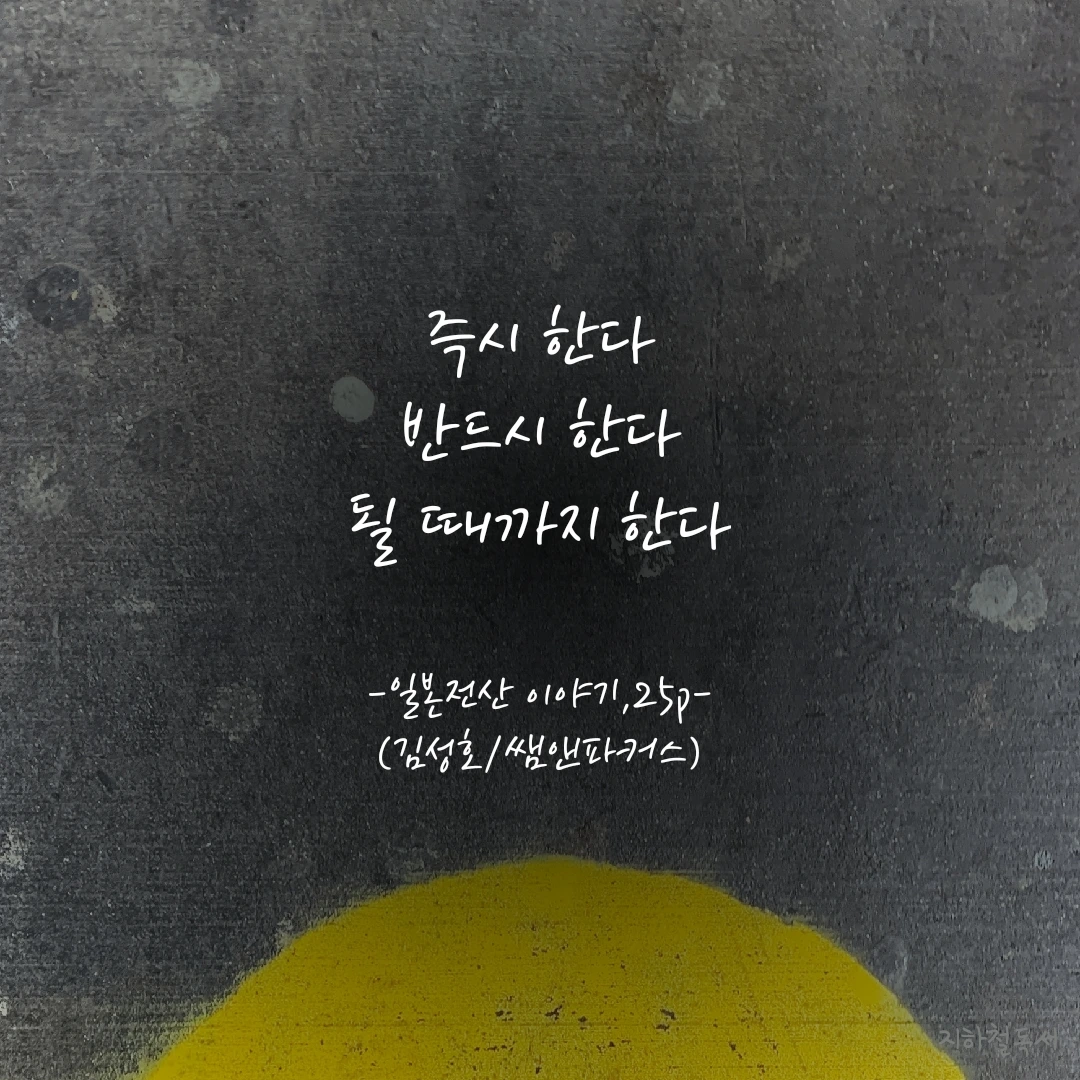 즉시 한다
반드시 한다
될 때까지 한다
-일본전산 이야기,25p-
(김성호/쌤앤파커스)
지하철독서